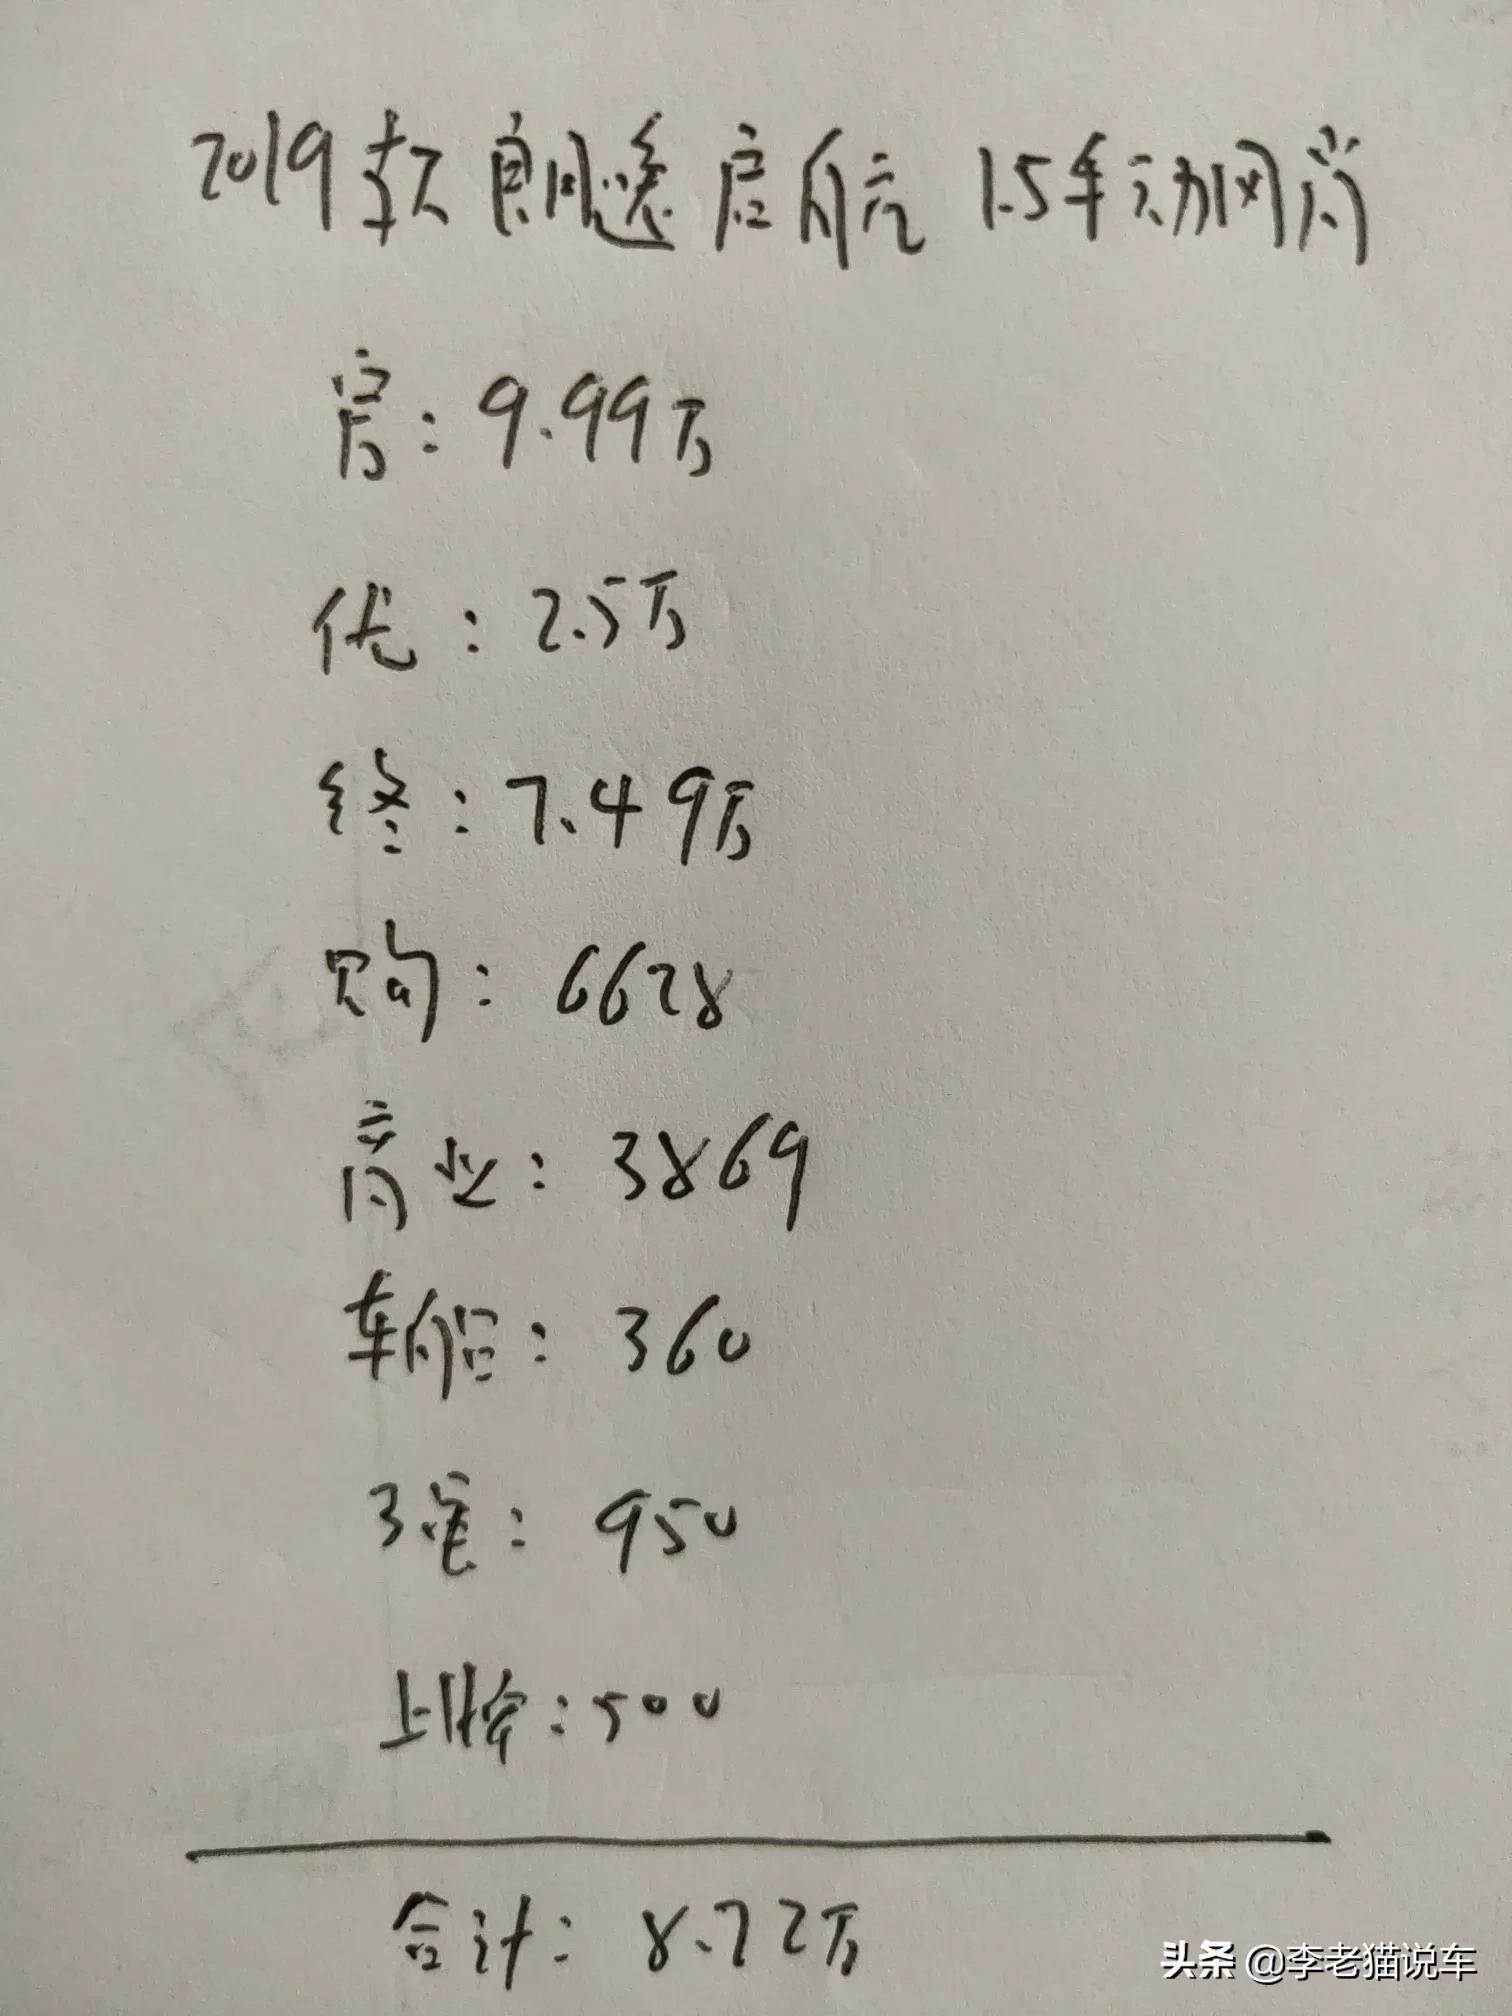 2019款朗逸启航 1.5手动风尚
官：9.99万
优：2.5万
终：7.49万
购：6628
商业：3869
车船：360
强：950
上牌：500
合计：8.72万
头条@李老猫说车